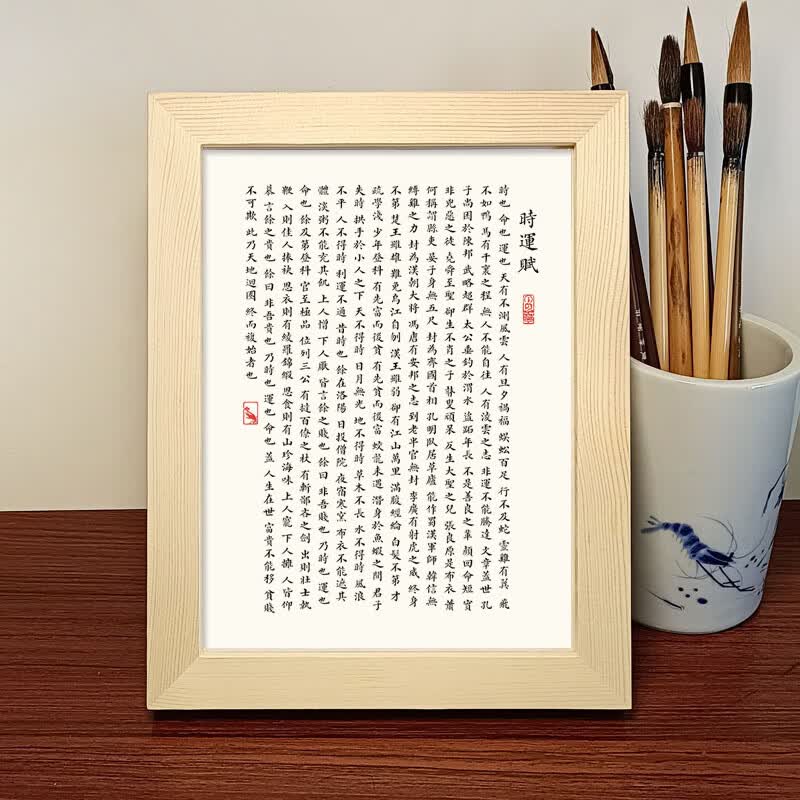 時運賦
時也 命也 運也 天有不測風雲 人有旦夕禍福 蜈蚣百足 行不及蛇 靈雞有 飛
不如鴨 馬有千裏之程 無人不能自往 人有淩雲之志 非運不能騰達 文章蓋世 孔
子尚困於陳邦 武略超群 太公垂釣於渭水 盜跖年長 不是善良之輩 顏回命短 實
非兇惡之徒 堯舜至聖 卻生不肖之子 瞽叟頑呆 反生大聖之兒 張良原是布衣 蕭
何稱謂縣吏 晏子身無五尺 封為齊國首相 孔明臥居草廬 能作蜀漢軍師 韓信無
縛雞之力 封為漢朝大將 馮唐有安邦之志 到老半官無封 李廣有射虎之威 終身
不第 楚王雖雄 難免烏江自刎 漢王雖弱 卻有江山萬里 滿腹經綸 白髮不第 才
疏學淺 少年登科 有先富而後貧 有先貧而後富 蛟龍未遇 潛身於魚蝦之間 君子
失時 拱手於小人之下 天不得時 日月無光 地不得時 草木不長 水不得時 風浪
不平 人不得時 利運不通 昔時也 餘在洛陽 日投僧院 夜宿寒窯 布衣不能遮其
體 淡粥不能充其飢 上人憎 下人厭 皆言餘之賤也 餘曰 非吾賤也 乃時也 運也
命也 餘及第登科 官至極品 位列三公 有撻百僚之杖 有斬鄙吝之劍 出則壯士執
鞭 入則佳人捧袂 思衣則有綾羅錦緞 思食則有山珍海味 上人寵 下人擁 人皆仰
慕 言餘之貴也 餘曰 非吾貴也 乃時也 運也 命也 蓋 人生在世 富貴不能移 貧賤
不可欺 此乃天地迴圈 終而複始者也